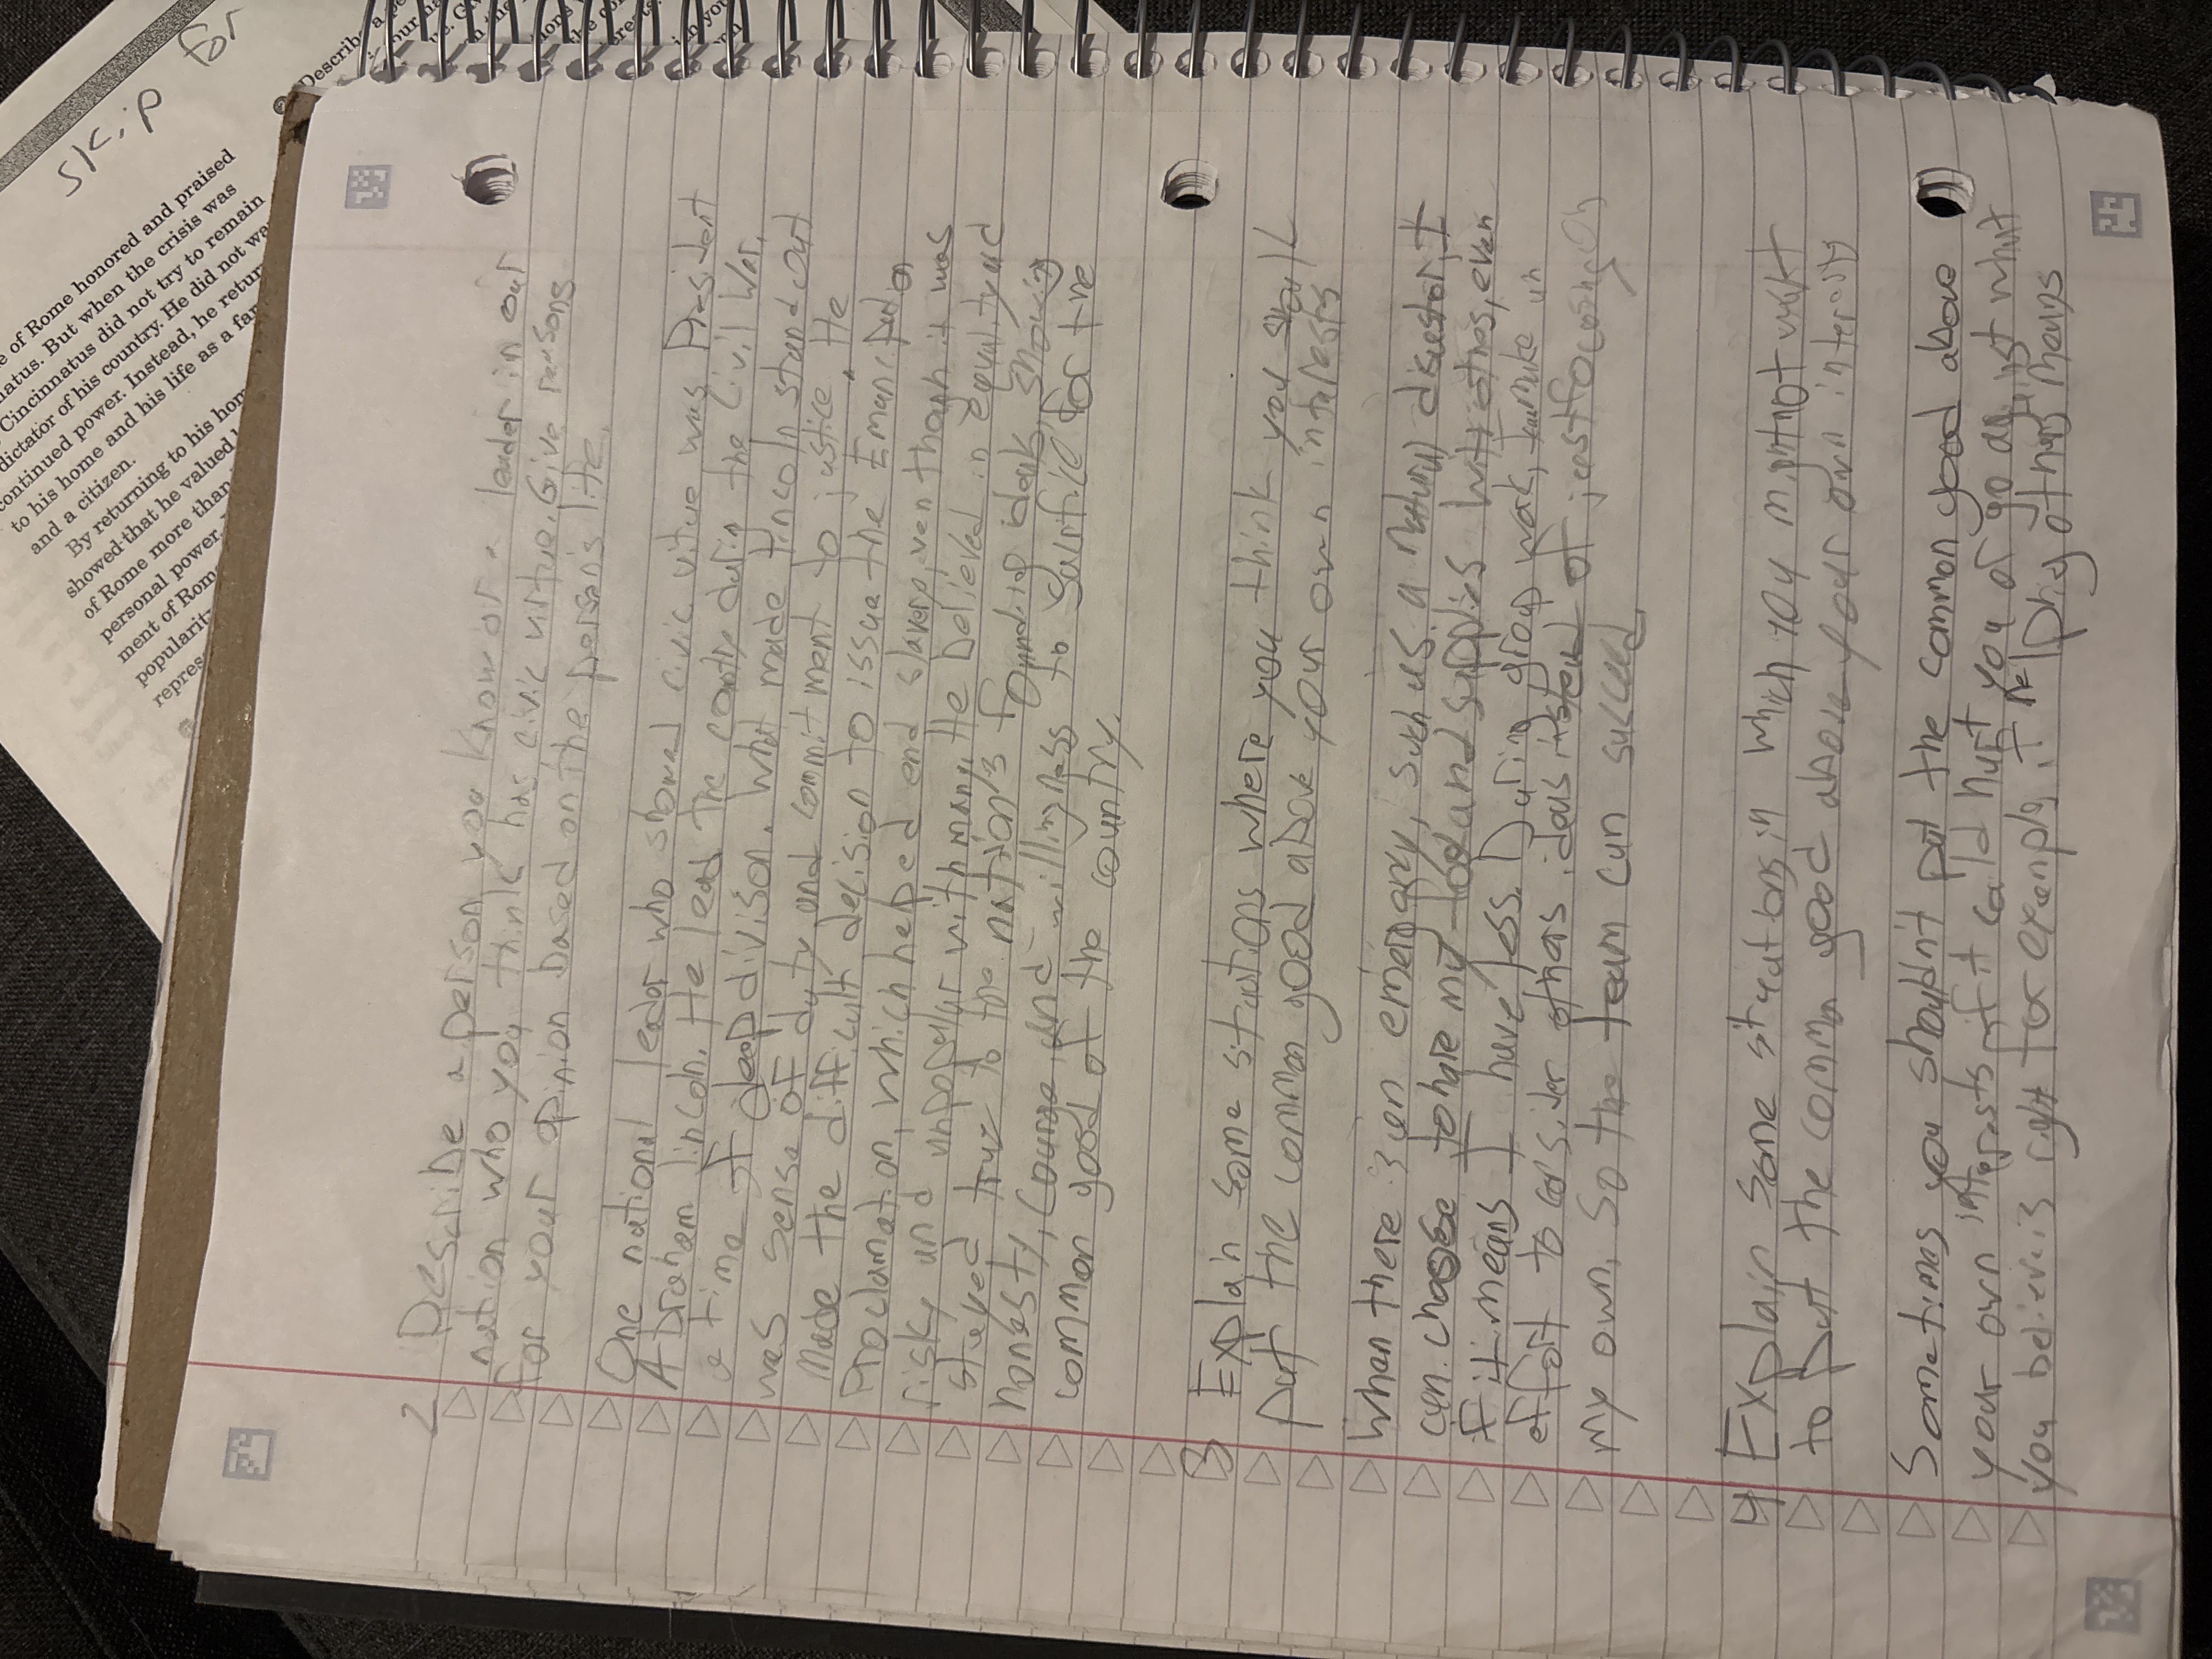 skip
for
e of Rome honored and praised
natus. But when the crisis was
Cincinnatus did not try to remain
dictator of his country. He did not wa
continued power. Instead, he retur
to his home and his life as a far
and a citizen.
By returning to his hom
showed that he valued
of Rome more than
personal power.
ment of Rom
popularit
repres
Describe
2 Describe a person you know or a leader in our
nation who you think has civic virtue. Give reasons
for your opinion based on the person's life.
One national leador who showed civic virtue was President
Abraham lincoln. He lead the contry durin the civil War,
a time of deep divison. what made Lincoln stand out
was sense of duty and commitment to justice. He
Made the difficult decision to issue the Emancipado
Proclamation, which helped end slavery, even though it was
risky and unpopular with many. He belived in equality and
stayed true to the nation's founding ideals, showing
honesty, courage, and willingness to sacrifice for the
common good of the country.
3 Explain some situations where you think you shoul
put the common good above your own intrests
When there is an emergacy, such as a natural disestor, I
can choose to share my food and supplies with othes, even
if it means I have less. During group wok, make un
effort to considor othes ideas instead of jeast focusing on
my own, so the team can succed
4 Explain some situations in which you might not want
to put the common good above your own interests
Sometimes you shouldn't put the common good above
your own interests if it could hurt you or go against what
you believe is right for example, if helping others means